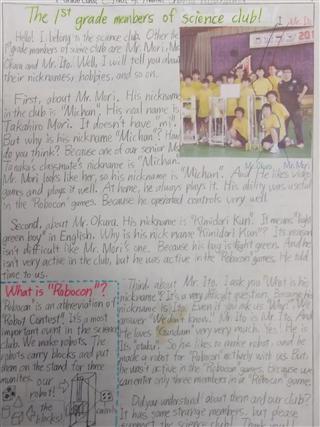 The 1ST grade members of science club!
Hello! I belong to the science club. Other the
1st grade members of science club are Mr. Mori, Mr.
Okura and Mr. Ito. Well, I will tell you about
their nicknames, hobbies, and so on.
I Mr. Ito
201
Mr. Okura Mr. Mori
First, about Mr. Mori. His nickname
in the club is "Michan". His real name is
Takahiro Mori. It doesn't have "mi".
But why is his nickname "Michan"? How
do you think? Because one of our senior Mr.
Tanaka's classmate's nickname is "Michan".
Mr. Mori looks like her, so his nickname is "Michan". And He likes video
games and plays it well. At home, he always plays it. His ability was useful
in the "Robocon" games. Because he operated controls very well.
Second, about Mr. Okura. His nickname is "Kimidori Kun". It means "light
green boy" in English. Why is his nick name "Kimidori Kun"? Its reason
isn't difficult like Mr. Mori's one. Because his bag is light green. And he
isn't very active in the club, but he was active in the "Robocon" games. He told
time to us.
What is "Robocon"?
Robocon is an abbreviation of
"Robot Contest". It's a most
important event in the science
club. We make robots. The
robots carry blocks and put
them on the stand for three
munites.
our
robot!
the
blocks!
Third about Mr. Ito. I ask you "What is his
nickname?" It's a very difficult question. Because his
nickname is Ito. Even if you ask us "Why?" We
answer "We don't know." Mr. Ito is Mr. Ito. And
he loves "Gundam" very very much. Yes! He is
Its "otaku". So he likes to make robot, and he
made a robot for "Robocon" actively with us. But
he wasn't active in the "Robocon" games, because we
can enter only three members in a "Robocon" game.
Did you understand about them and our club?
It has some strange members, but please
support the science club! Thank you!